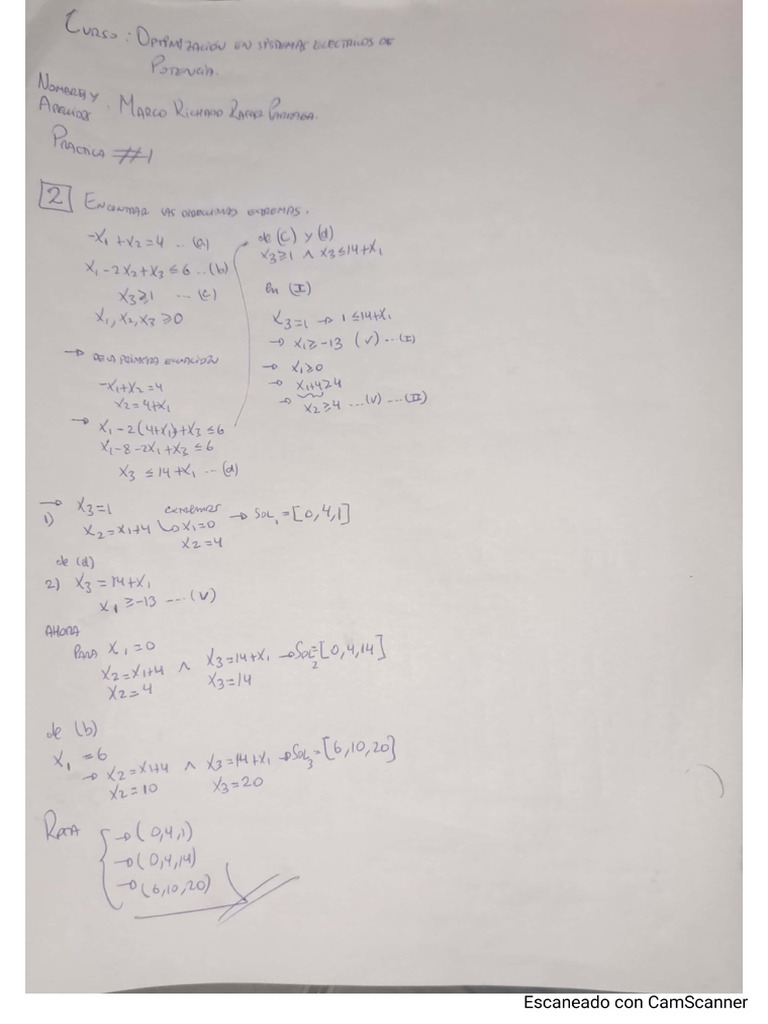 Curso: Optimización en sistemas eléctricos de
Potencia.
Nombres y
Apellidos: Marco Richard
Practica #1
2 Encontrar las extremas.
-x₁ + x₂ = 4 .. (a)
x₁ - 2x₂ + x₃ ≤ 6 .. (b)
x₃ ≥ 1 ... (c)
x₁, x₂, x₃ ≥ 0
→ De la primera ecuación
-x₁ + x₂ = 4
x₂ = 4 + x₁
→ x₁ - 2(4+x₁) + x₃ ≤ 6
x₁ - 8 - 2x₁ + x₃ ≤ 6
x₃ ≤ 14 + x₁ ... (d)
de (c) y (d)
x₃ ≥ 1 ∧ x₃ ≤ 14 + x₁
en (I)
x₃ = 1 → 1 ≤ 14 + x₁
→ x₁ ≥ -13 (v) ... (I)
→ x₁ ≥ 0
→ x₁ + 4 ≥ 4
→ x₂ ≥ 4 ... (v) ... (II)
→ x₃ = 1
1) x₂ = x₁ + 4 x₁ = 0 → Sol₁ = [0, 4, 1]
x₂ = 4
de (d)
2) x₃ = 14 + x₁
x₁ ≥ -13 ... (v)
Ahora
Para x₁ = 0
x₂ = x₁ + 4 ∧ x₃ = 14 + x₁ → Sol₂ = [0, 4, 14]
x₂ = 4 x₃ = 14
de (b)
x₁ = 6
→ x₂ = x₁ + 4 ∧ x₃ = 14 + x₁ → Sol₃ = [6, 10, 20]
x₂ = 10 x₃ = 20
Rpta
→ (0, 4, 1)
→ (0, 4, 14)
→ (6, 10, 20)
Escaneado con CamScanner